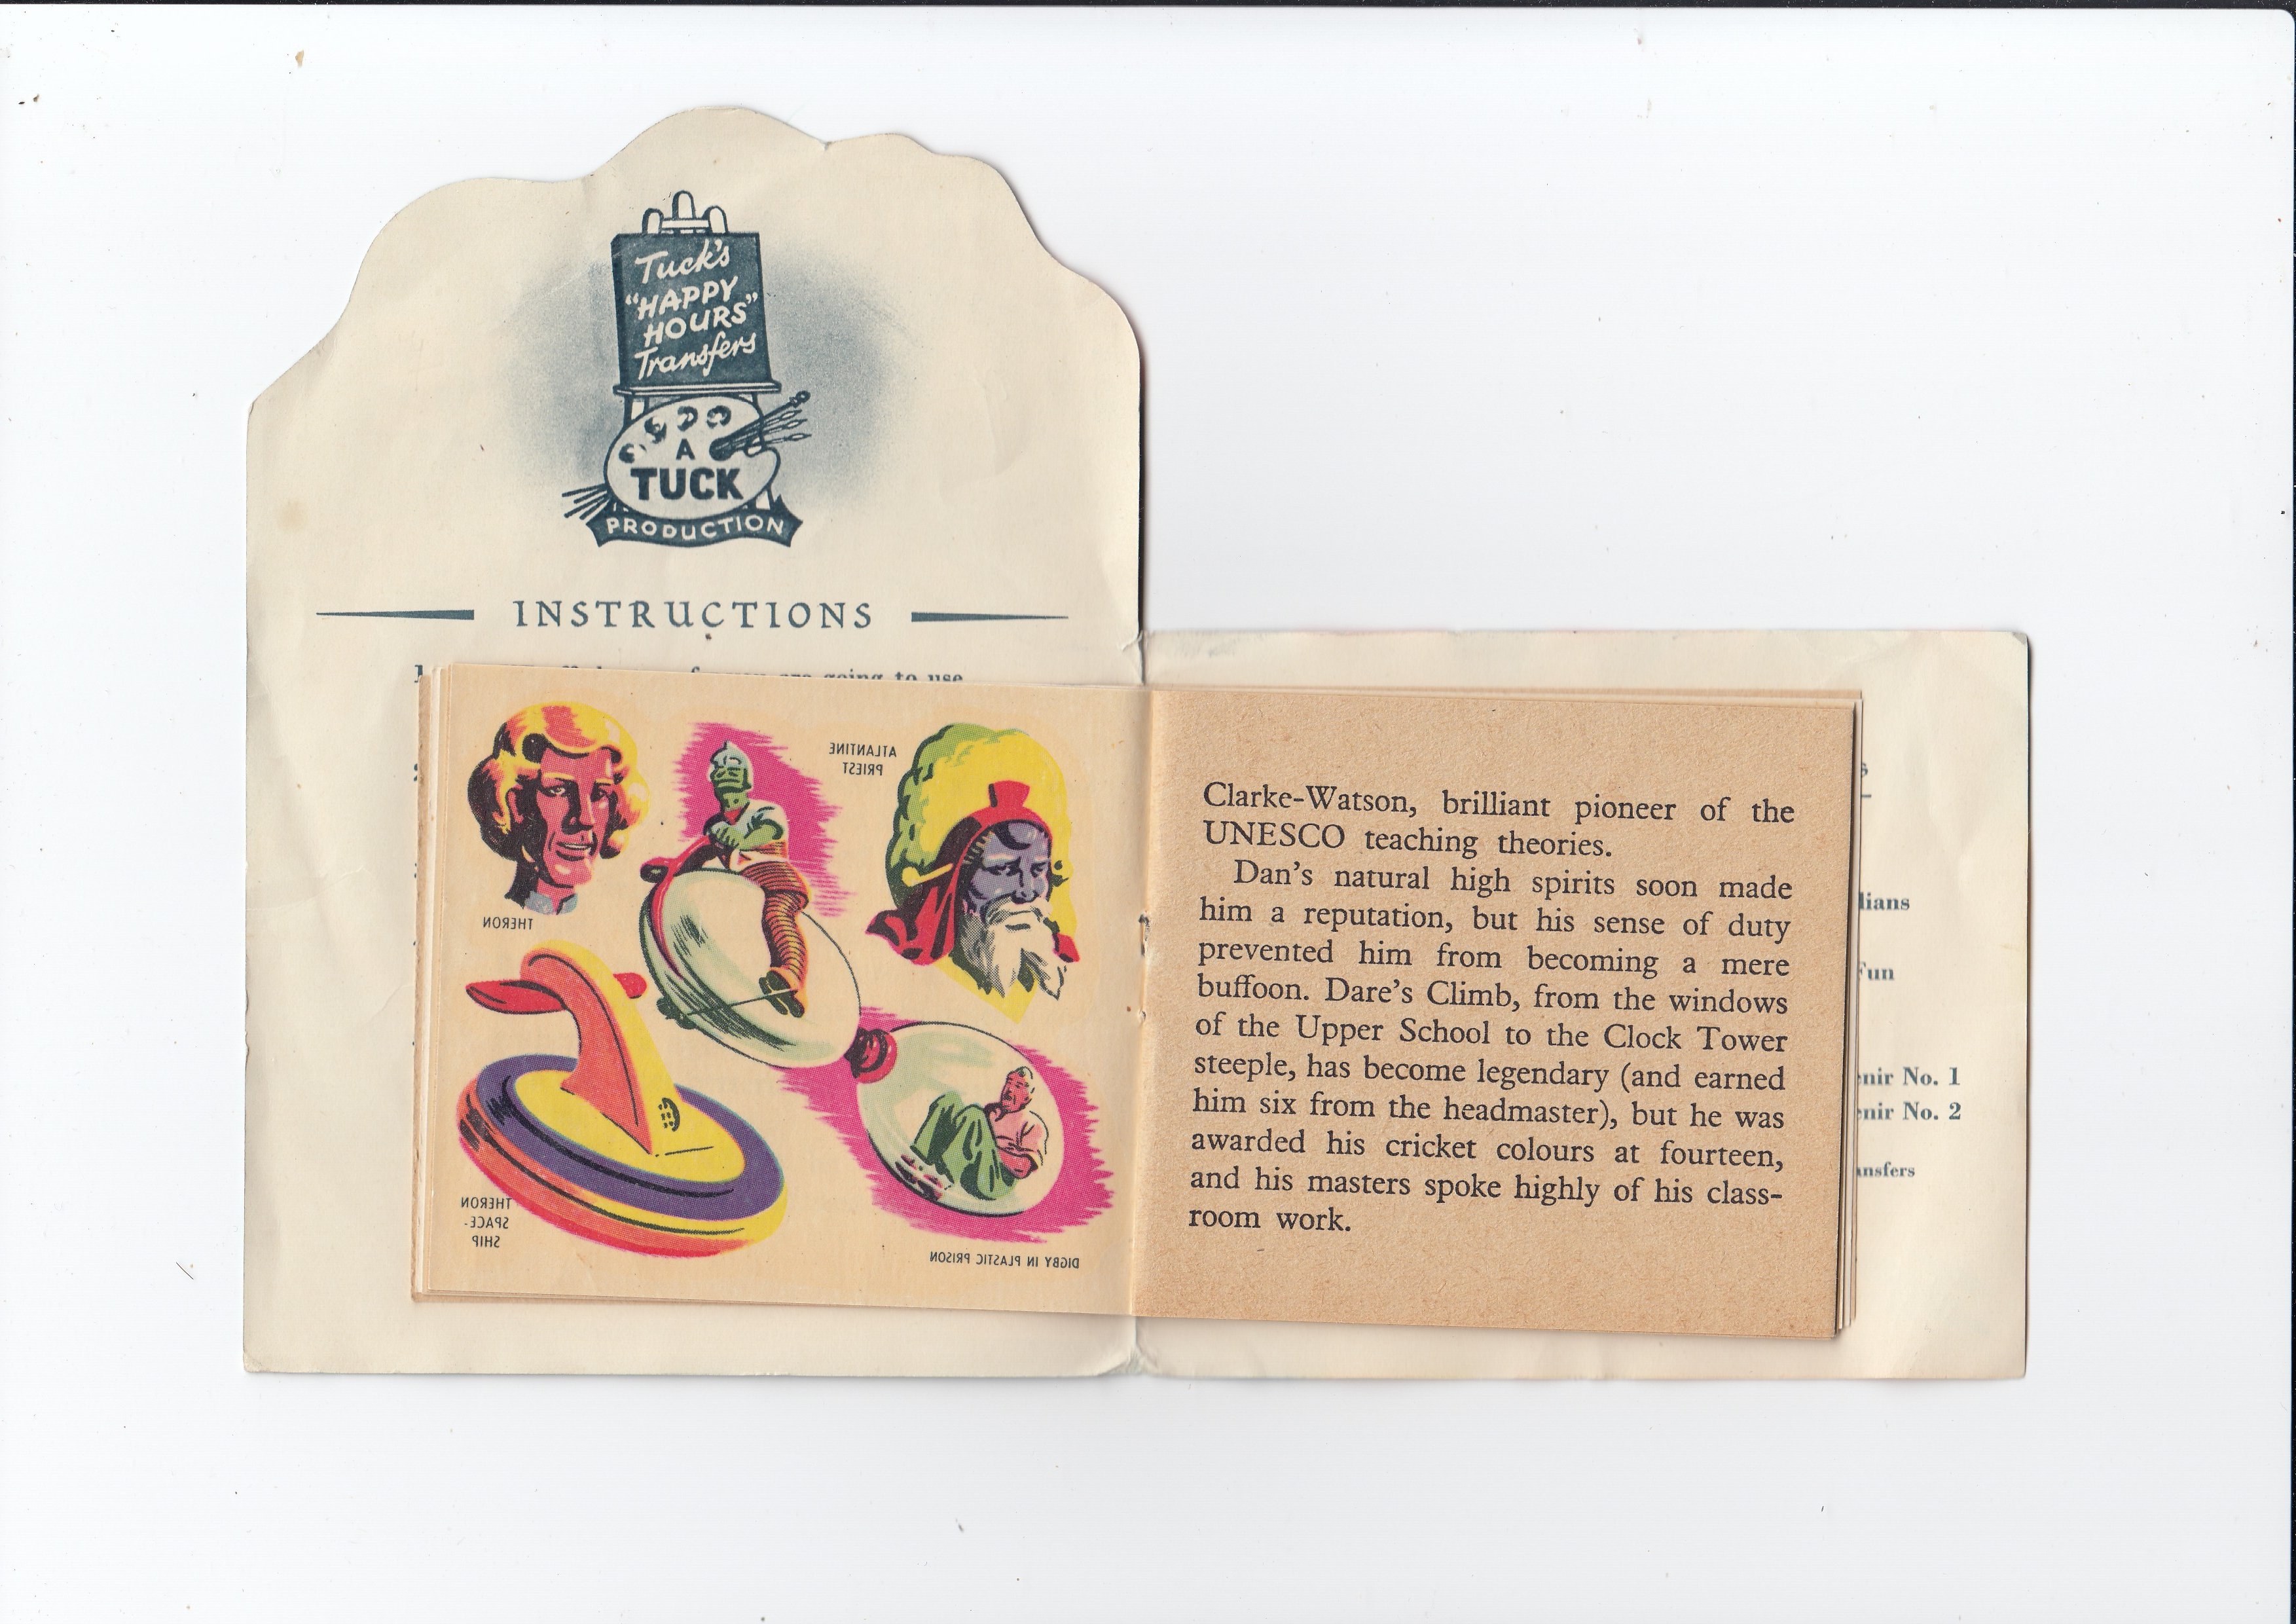 Tuck's
"HAPPY
HOURS"
Transfers
A
TUCK
PRODUCTION
INSTRUCTIONS
are going to use
THERON
ATLANTINE
PRIEST
THERON
SPACE-
SHIP
DIGBY IN PLASTIC PRISON
Clarke-Watson, brilliant pioneer of the
UNESCO teaching theories.
Dan's natural high spirits soon made
him a reputation, but his sense of duty
prevented him from becoming a mere
buffoon. Dare's Climb, from the windows
of the Upper School to the Clock Tower
steeple, has become legendary (and earned
him six from the headmaster), but he was
awarded his cricket colours at fourteen,
and his masters spoke highly of his class-
room work.
Fun
No. 1
No. 2